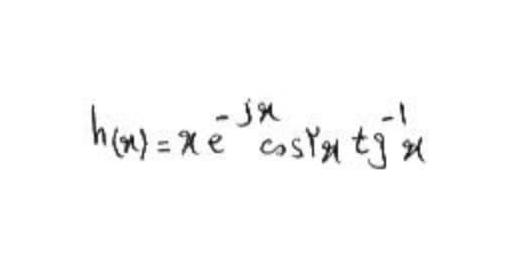 h(x) = x e^{-jx} cos۲x tg^{-1} x